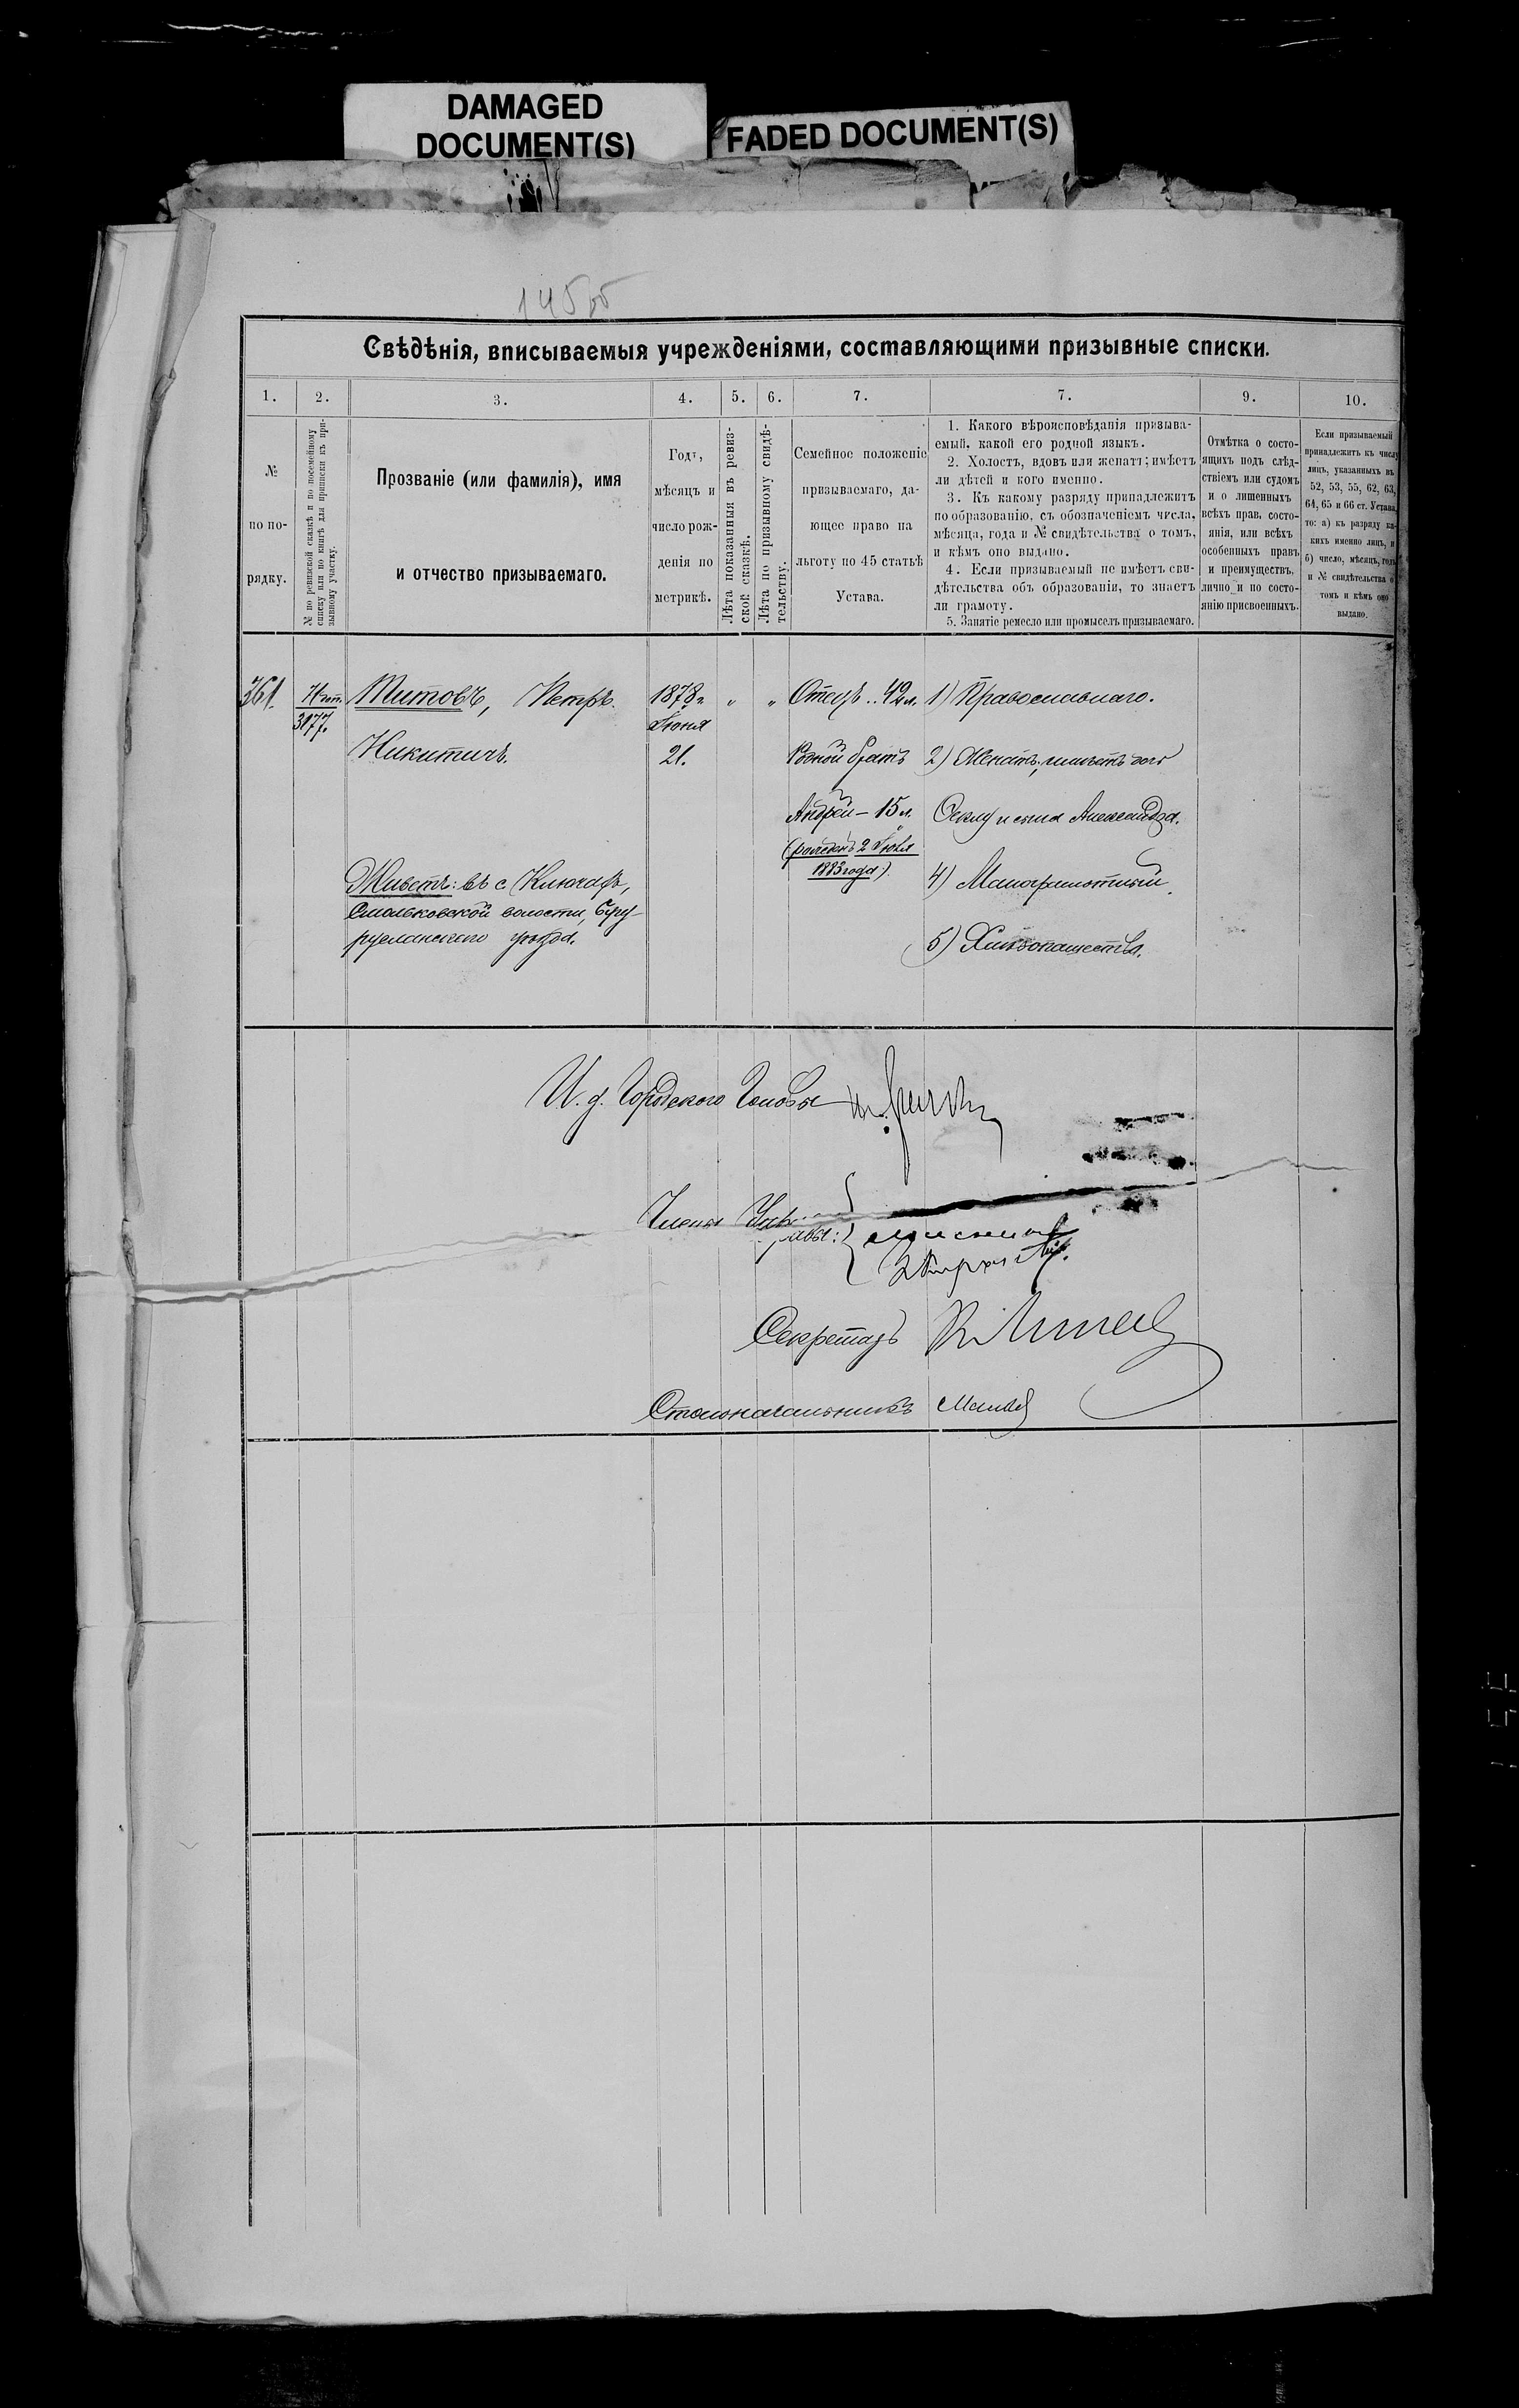 DAMAGED
DOCUMENT(S)
FADED DOCUMENT(S)
145об
Свѣдѣнія, вписываемыя учрежденіями, составляющими призывные списки.
1. 2. 3. 4. 5. 6. 7. 7. 9. 10.
№
по по-
рядку.
№ по ревизской сказкѣ и по посемейному
списку или по книгѣ для приписки къ при-
зывному участку.
Прозваніе (или фамилія), имя
и отчество призываемаго.
Годъ,
мѣсяцъ и
число рож-
денія по
метрикѣ.
Лѣта показанныя въ ревиз-
ской сказкѣ.
Лѣта по призывному свидѣ-
тельству.
Семейное положеніе
призываемаго, да-
ющее право на
льготу по 45 статьѣ
Устава.
1. Какого вѣроисповѣданія призыва-
емый, какой его родной языкъ.
2. Холостъ, вдовъ или женатъ; имѣетъ
ли дѣтей и кого именно.
3. Къ какому разряду принадлежитъ
по образованію, съ обозначеніемъ числа,
мѣсяца, года и № свидѣтельства о томъ,
и кѣмъ оно выдано.
4. Если призываемый не имѣетъ сви-
дѣтельства объ образованіи, то знаетъ
ли грамоту.
5. Занятіе ремесло или промыселъ призываемаго.
Отмѣтка о состо-
ящихъ подъ слѣд-
ствіемъ или судомъ
и о лишенныхъ
всѣхъ прав. состо-
янія, или всѣхъ
особенныхъ правъ
и преимуществъ,
лично и по состо-
янію присвоенныхъ.
Если призываемый
принадлежитъ къ числу
лицъ, указанныхъ въ
52, 53, 55, 62, 63,
64, 65 и 66 ст. Устава,
то: а) къ разряду ка-
кихъ именно лицъ, и
б) число, мѣсяцъ, годъ
и № свидѣтельства о
томъ и кѣмъ оно
выдано.
361.
3177.
Титовъ, Петръ
Никитичъ.
Живетъ: въ с. Ключахъ,
Смольковской волости, Бугу-
русланскаго уѣзда.
1878 г.
Іюня
21.
" "
Отецъ .. 42 л.
Родной братъ
Андрей — 15 л.
(рожденъ 2 Іюля
1883 года)
1) Православнаго.
2) Женатъ, имѣетъ дочь
Феклу и сына Александра.
4) Малограмотный.
5) Хлѣбопашества.
И. д. Городского Головы
Члены Управы:
Секретарь
Столоначальникъ